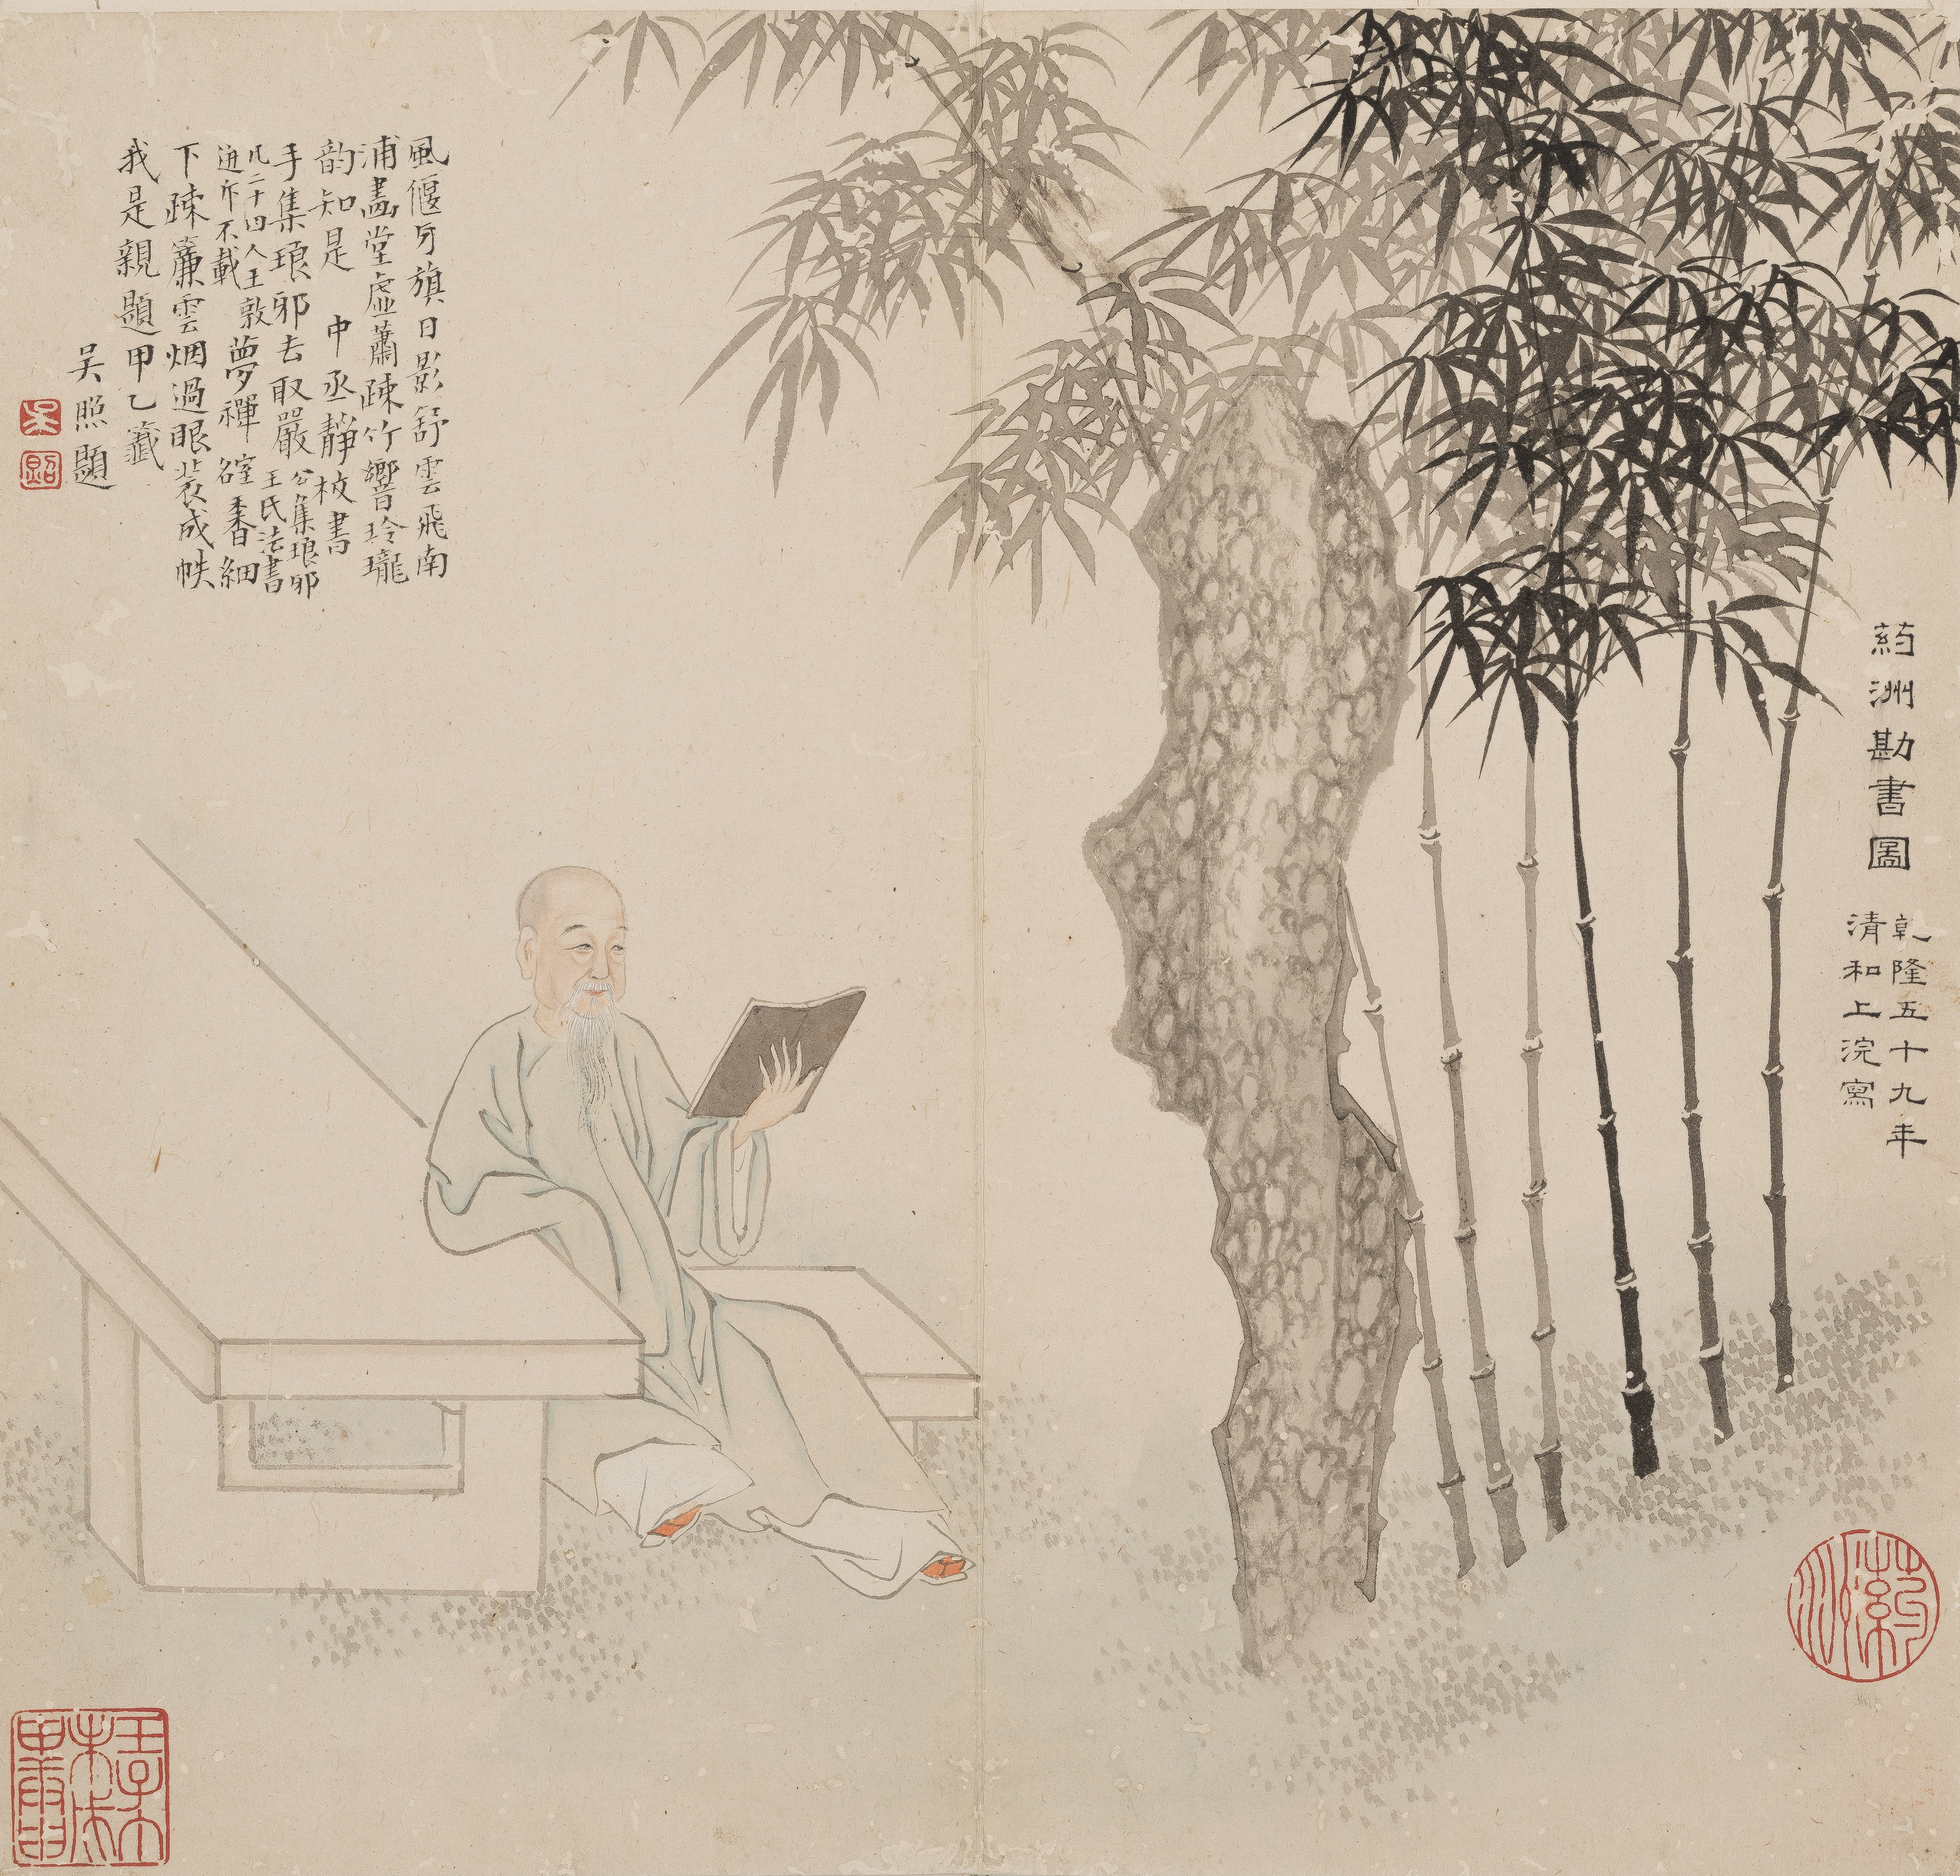 葯洲勘書圖
乾隆五十九年
清和上浣寫
葯洲
風偃牙旗日影舒雲飛南
浦畫堂虛蕭疎竹響玲瓏
韵知是 中丞靜校書
手集琅邪去取嚴
公集琅邪
王氏法書
凡二十四人王敦
迹斥不載
夢禪香細
下疎簾雲烟過眼裝成帙
我是親題甲乙籤
吳照題
吳
照